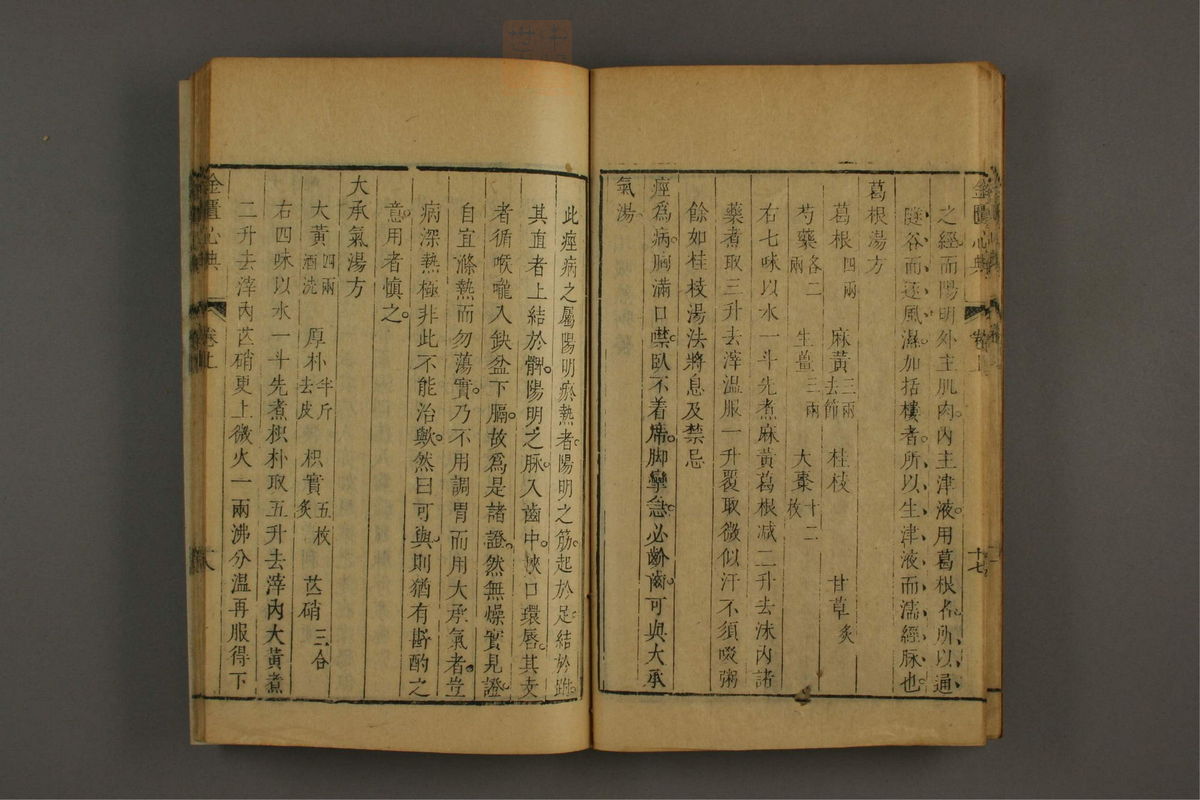 金匱心典 卷上 十七
之經而陽明外主肌肉。內主津液。用葛根者。所以通
隧谷而逐風濕。加括樓者。所以生津液而濡經脉也。
葛根湯方
葛根四兩 麻黃三兩去節 桂枝 甘草炙
芍藥各二兩 生薑三兩 大棗十二枚
右七味以水一斗先煮麻黃葛根減二升去沫內諸
藥煮取三升去滓溫服一升覆取微似汗不須啜粥
餘如桂枝湯法將息及禁忌
痙爲病。胸滿口噤。臥不着席。脚攣急。必齘齒。可與大承
氣湯。
此痙病之屬陽明瘀熱者。陽明之筋。起於足。結於跗。
其直者上結於髀。陽明之脉。入齒中。挾口環唇。其支
者。循喉嚨。入缺盆下膈。故爲是諸證。然無燥實見證。
自宜滌熱而勿蕩實。乃不用調胃而用大承氣者。豈
病深熱極非此不能治歟。然曰可與。則猶有斟酌之
意。用者慎之。
大承氣湯方
大黃四兩酒洗 厚朴半斤去皮 枳實五枚炙 芒硝三合
右四味以水一斗先煮枳朴取五升去滓內大黃煮
二升去滓內芒硝更上微火一兩沸分溫再服得下
金匱心典 卷上